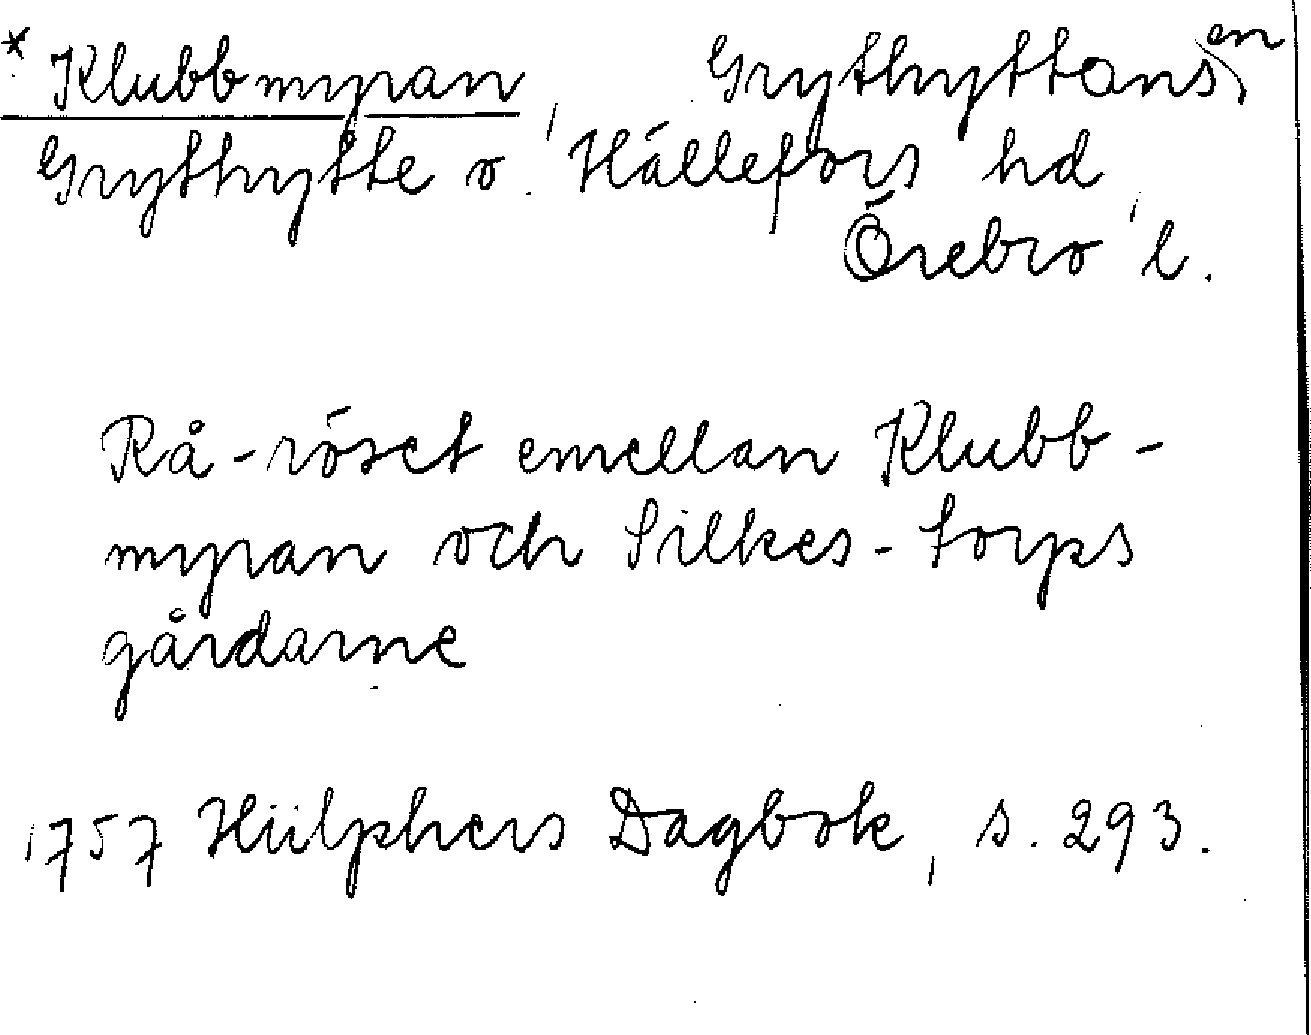 * Klubbmyran, Grythyttans en,
Grythytte o. Hällefors hd,
Örebro l.
Rå-röset emellan Klubb-
myran och Silkes-torps
gårdarne
1757 Hülphers Dagbok, s. 293.